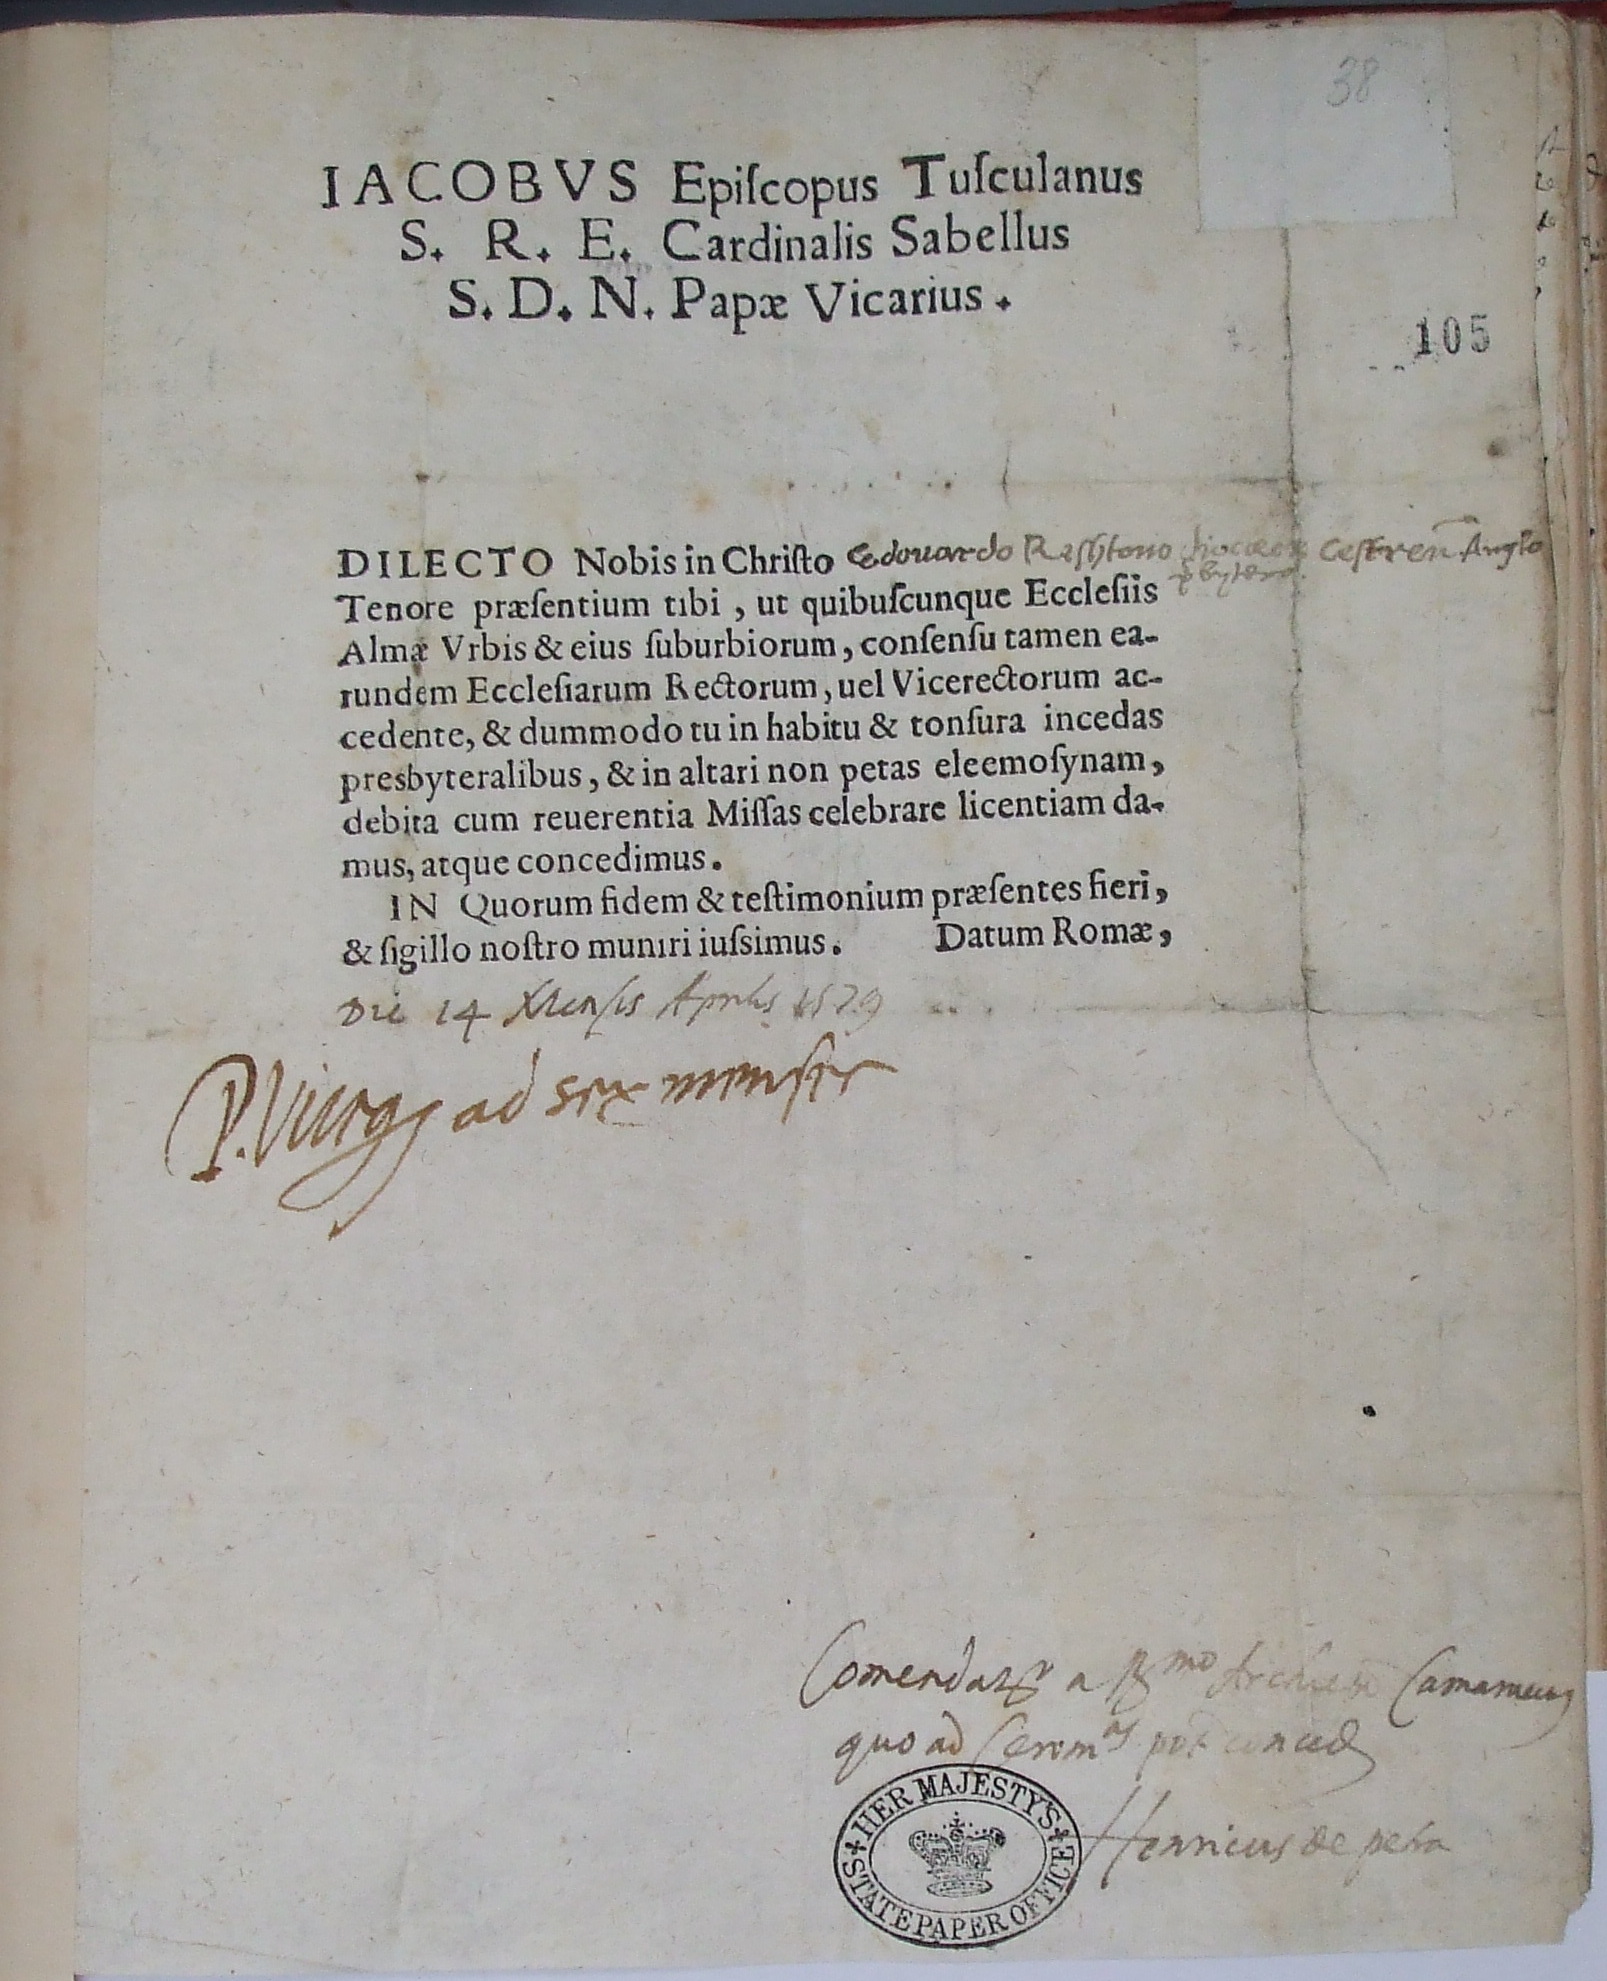 38
IACOBVS Epiſcopus Tuſculanus
S. R. E. Cardinalis Sabellus
S. D. N. Papæ Vicarius.
105
DILECTO Nobis in Chriſto Edouardo Rashtono Ceſtreñ Anglo
Tenore præſentium tibi, ut quibuſcunque Eccleſiis
Almæ Vrbis & eius ſuburbiorum, conſenſu tamen ea-
rundem Eccleſiarum Rectorum, uel Vicerectorum ac-
cedente, & dummodo tu in habitu & tonſura incedas
presbyteralibus, & in altari non petas eleemoſynam,
debita cum reuerentia Miſſas celebrare licentiam da-
mus, atque concedimus.
IN Quorum fidem & teſtimonium præſentes fieri,
& ſigillo noſtro muniri iuſsimus. Datum Romæ,
Die 14 Menſis Aprilis 1579
ad sex menſes
a
quo ad
Henricus de petra
HER MAJESTY'S STATE PAPER OFFICE